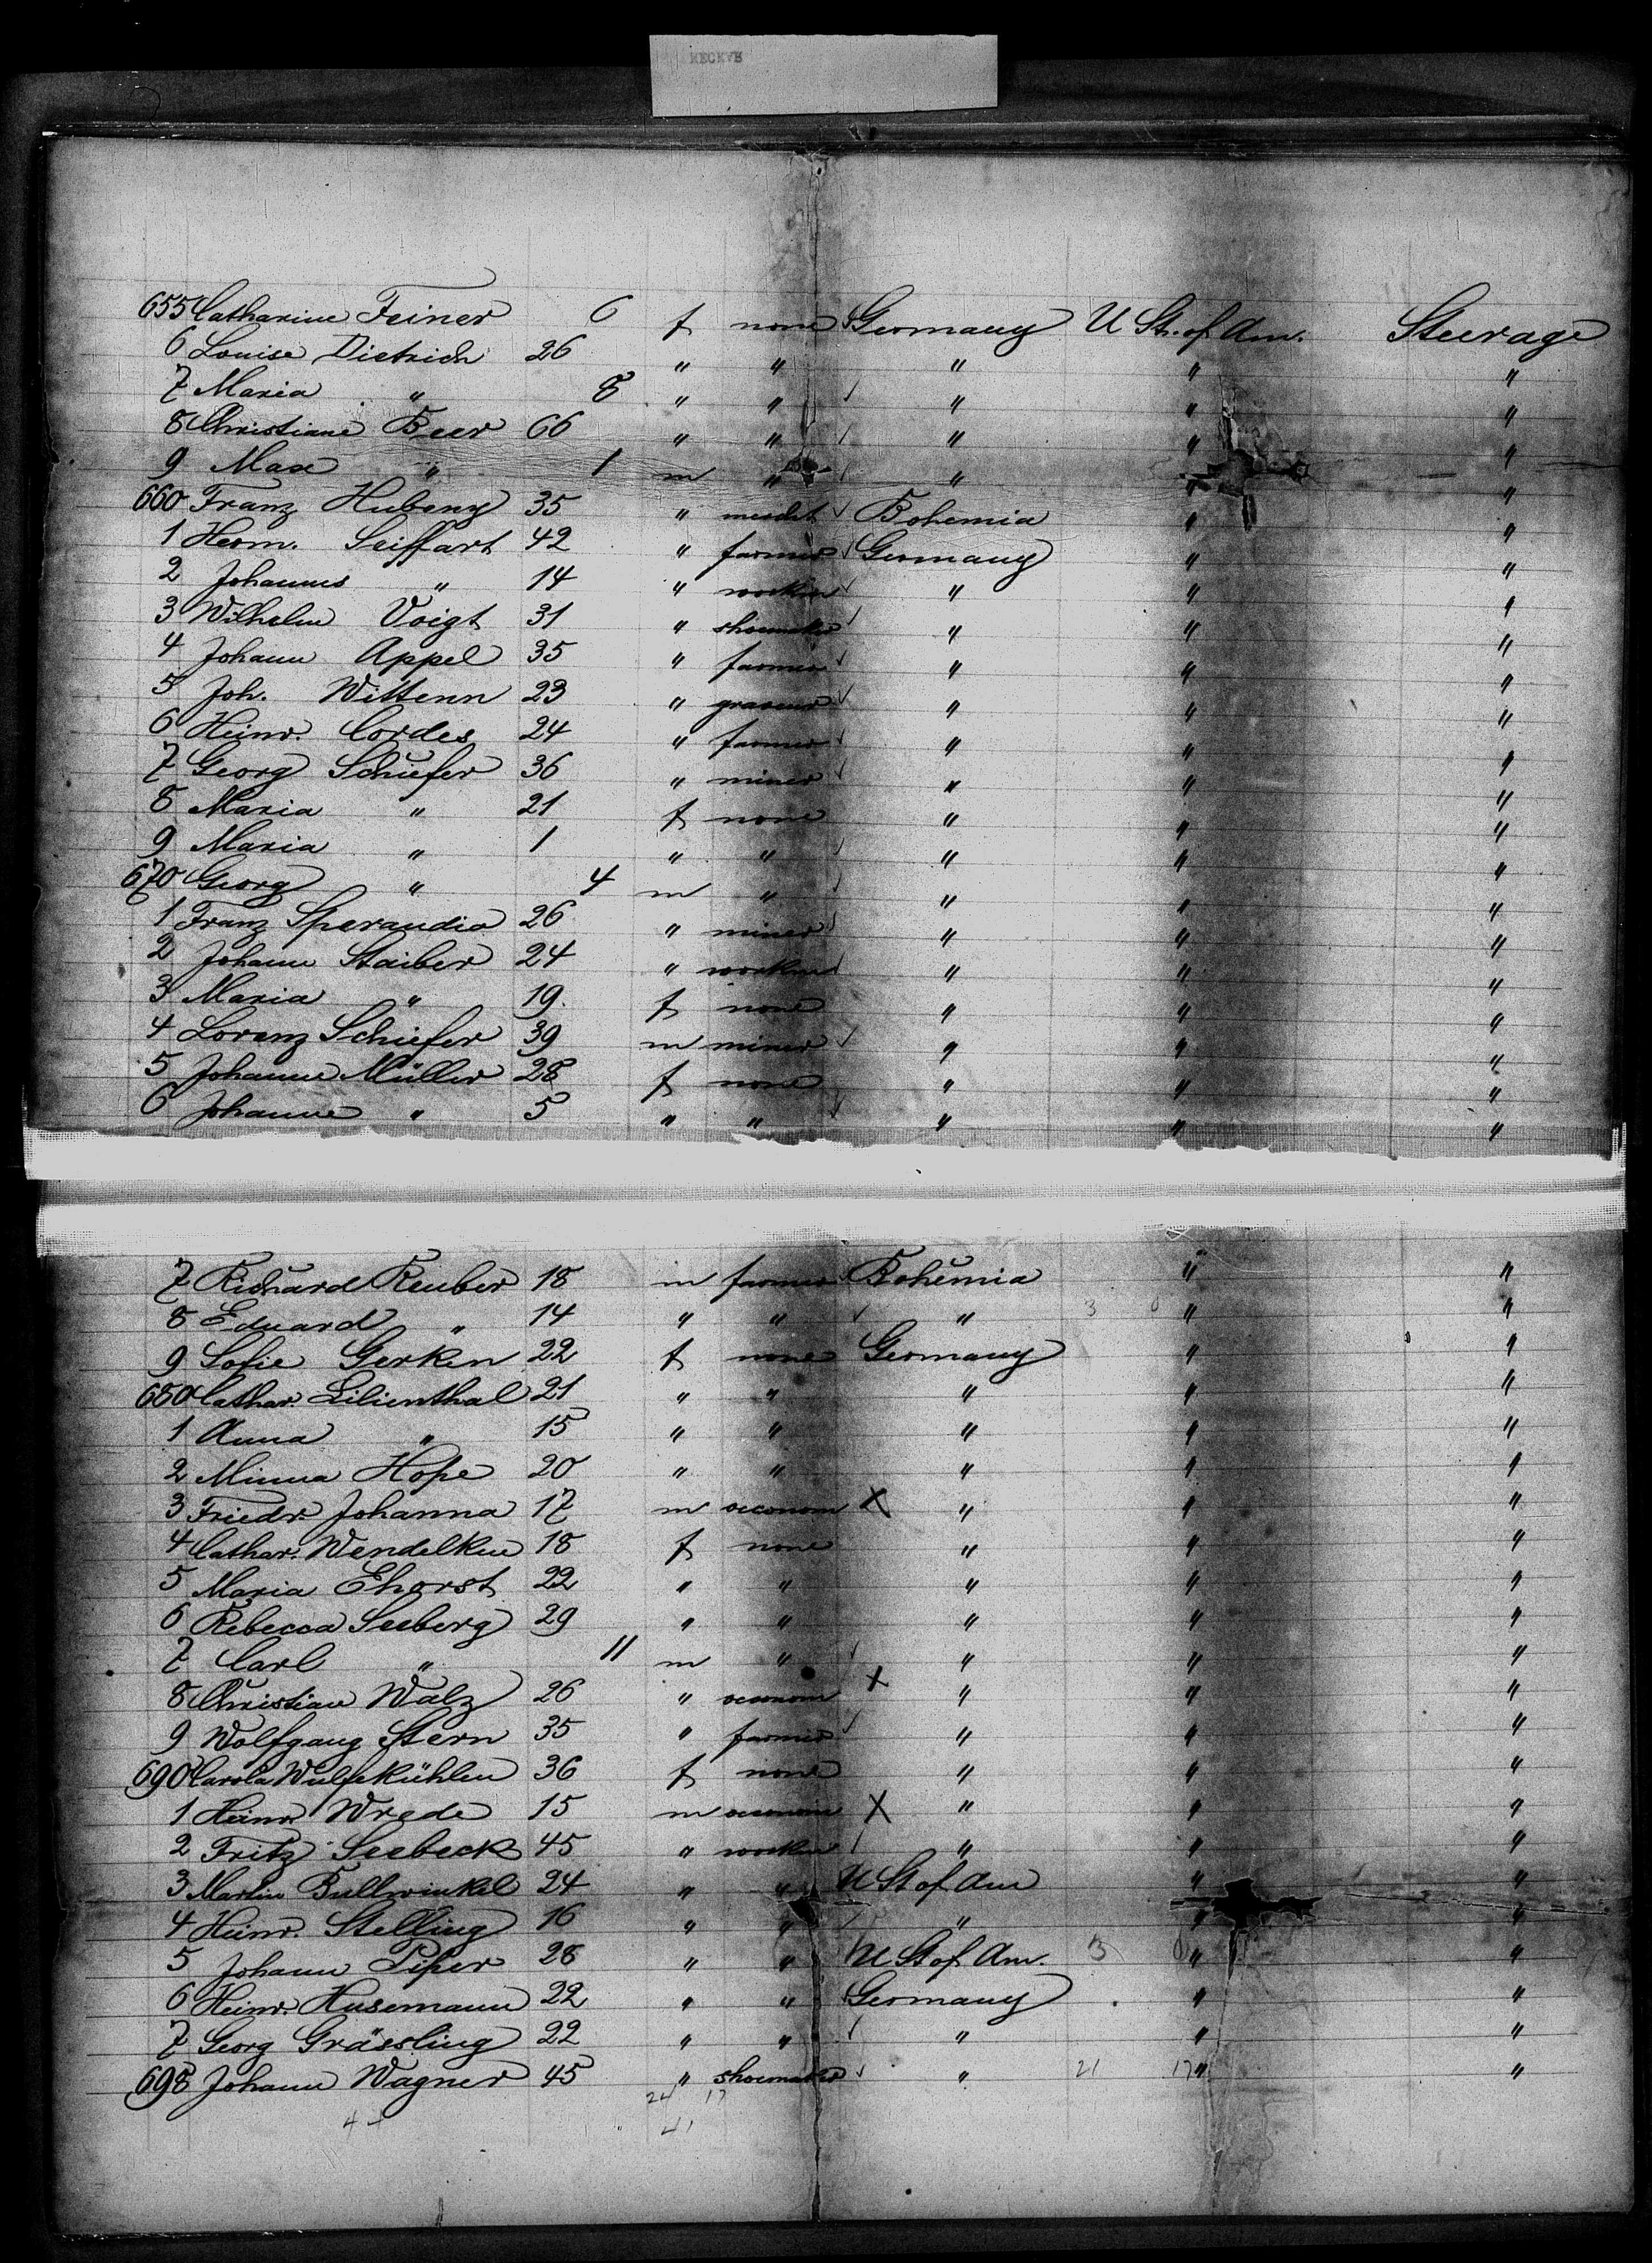 NECKAR
655 Catharine Feiner 6 f none Germany U St. of Am. Steerage
6 Louise Dietrich 26 " " " " "
7 Maria " 8 " " " " "
8 Christiane Beer 66 " " " " "
9 Max " 1 m " " " "
660 Franz Hubeny 35 " Bohemia " "
1 Herm. Seiffart 42 " farmer Germany " "
2 Johannes " 14 " workm " " "
3 Wilhelm Voigt 31 " shoemaker " " "
4 Johann Appel 35 " farmer " " "
5 Joh. Wittenn 23 " graveur " " "
6 Heinr. Cordes 24 " farmer " " "
7 Georg Schiefer 36 " miner " " "
8 Maria " 21 f none " " "
9 Maria " 1 " " " " "
670 Georg " 4 m " " " "
1 Franz Sperandio 26 " miner " " "
2 Johann Staiber 24 " workm " " "
3 Maria " 19. f none " " "
4 Lorenz Schiefer 39 m miner " " "
5 Johanne Müller 28 f none " " "
6 Johanne " 5 " " " " "
7 Richard Reuber 18 m farmer Bohemia " "
8 Eduard " 14 " " " 3 0 " "
9 Sofie Gerken 22 f none Germany " "
680 Cathar. Lilienthal 21 " " " " "
1 Anna " 15 " " " " "
2 Minna Hope 20 " " " " "
3 Friedr. Johanna 17 m oeconom X " " "
4 Cathar. Wendelken 18 f none " " "
5 Maria Ehorst 22 " " " " "
6 Rebecca Seeberg 29 " " " " "
7 Carl " 11 m " " " "
8 Christian Walz 26 " oeconom X " " "
9 Wolfgang Stern 35 " farmer " " "
690 Carola Wulfekühlen 36 f none " " "
1 Heinr. Wrede 15 m oeconom X " " "
2 Fritz Seebeck 45 " workm " " "
3 Martin Bullwinkel 24 " " U St of Am " "
4 Heinr. Stelling 16 " " " " "
5 Johann Piper 28 " " U St of Am. 3 0 " "
6 Heinr. Husemann 22 " " Germany " "
7 Georg Grässling 22 " " " " "
698 Johann Wagner 45 " shoemaker " 21 17 " "
24 17
41